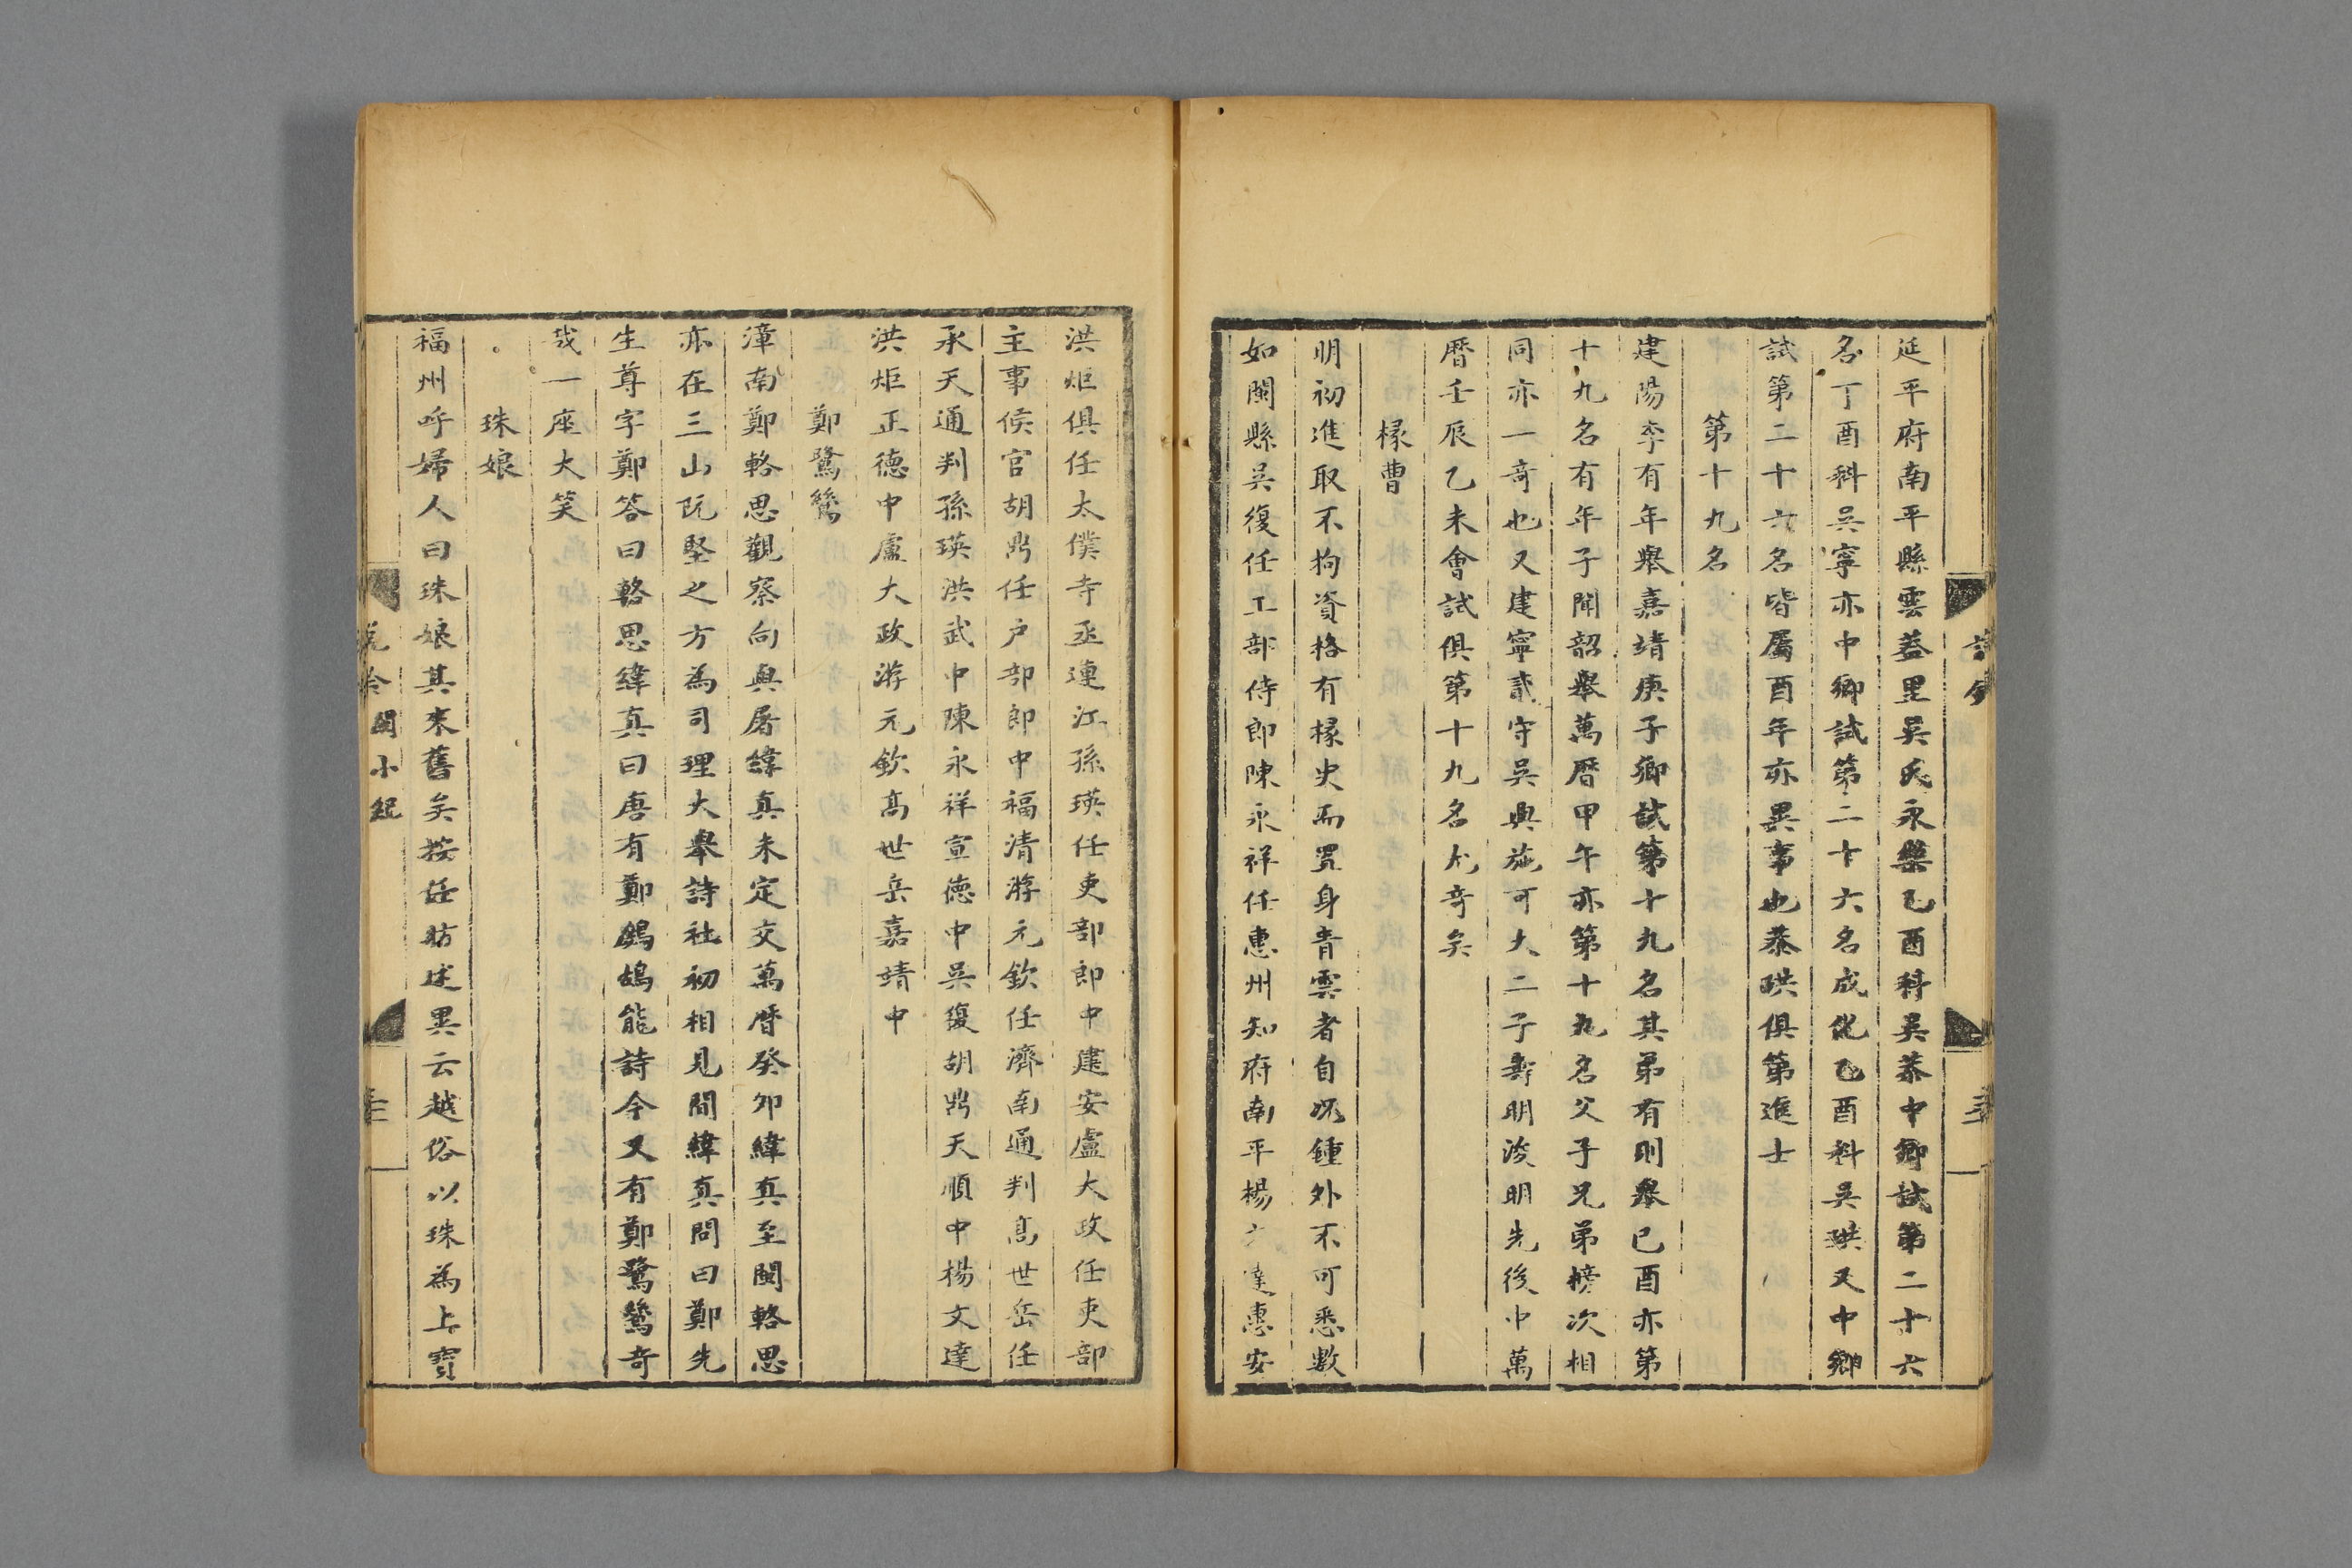 延平府南平縣雲蓋里吳氏永樂乙酉科吳恭中鄉試第二十六
名丁酉科吳寧亦中鄉試第二十六名成化乙酉科吳珙又中鄉
試第二十六名皆屬酉年亦異事也恭珙俱第進士
第十九名
建陽李有年舉嘉靖庚子鄉試第十九名其弟有則舉已酉亦第
十九名有年子聞韶舉萬曆甲午亦第十九名父子兄弟榜次相
同亦一奇也又建寧貳守吳興施可大二子壽明浚明先後中萬
曆壬辰乙未會試俱第十九名尤奇矣
椽曹
明初進取不拘資格有椽史而置身青雲者自况鍾外不可悉數
如閩縣吳復任工部侍郎陳永祥任惠州知府南平楊文達惠安
洪炬俱任太僕寺丞連江孫瑛任吏部郎中建安盧大政任吏部
主事侯官胡鼎任户部郎中福清游元欽任濟南通判高世岳任
承天通判孫瑛洪武中陳永祥宣德中吳復胡鼎天順中楊文達
洪炬正德中盧大政游元欽高世岳嘉靖中
鄭鷺鷥
漳南鄭輅思觀察向與屠緯真未定交萬曆癸卯緯真至閩輅思
亦在三山阮堅之方為司理大舉詩社初相見間緯真問曰鄭先
生尊字鄭答曰輅思緯真曰唐有鄭鷓鴣能詩今又有鄭鷺鷥奇
哉一座大笑
珠娘
福州呼婦人曰珠娘其來舊矣按任昉述異云越俗以珠為上寶
說鈴 閩小紀